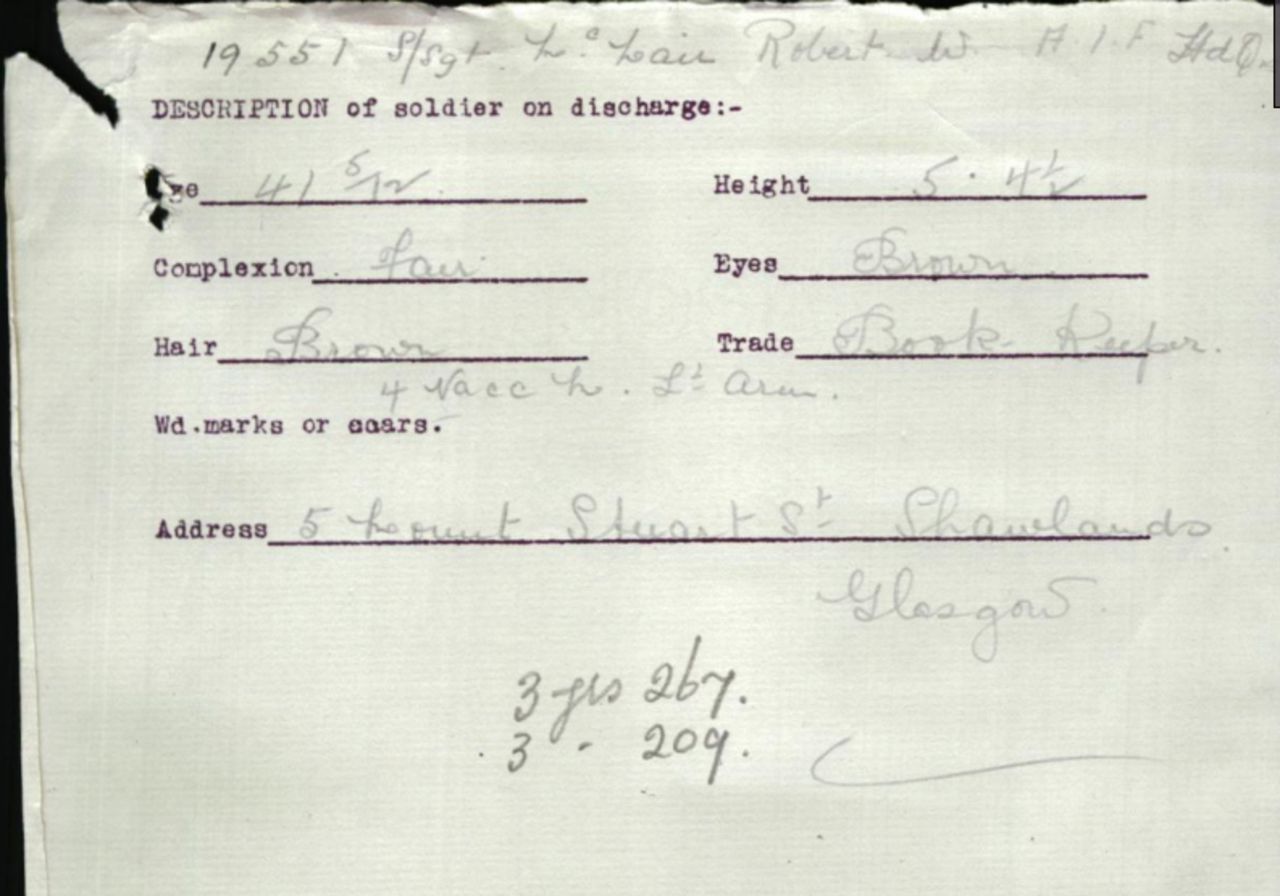 19551 S/Sgt. Mc Nair Robert W. A.I.F HdQ.
DESCRIPTION of soldier on discharge:-
Age 41 5/12 Height 5 · 4½
Complexion Fair Eyes Brown
Hair Brown Trade Book Keeper.
4 Vacc M. Lt Arm.
Wd.marks or scars.
Address 5 Mount Stuart St Shawlands
Glasgow
3 yrs 267.
3 - 209.